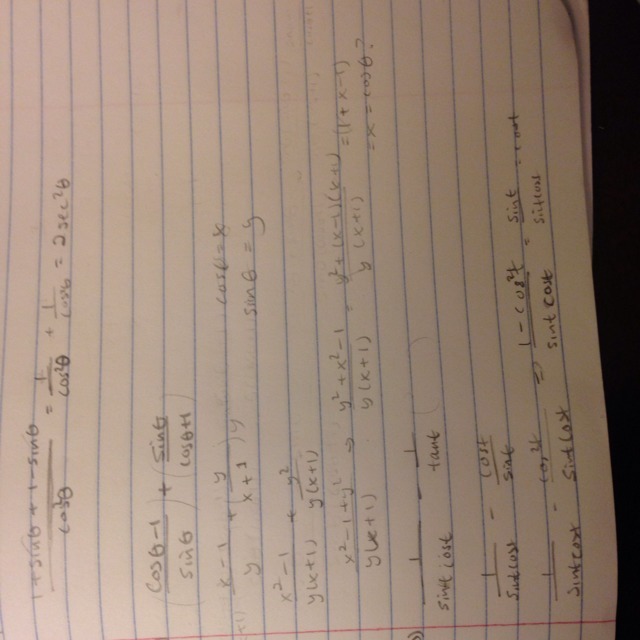 1 + sinθ + 1 - sinθ / cos²θ = 1/cos²θ + 1/cos²θ = 2sec²θ
cosθ-1 / sinθ + sinθ / cosθ+1
x-1 / y + y / x+1 cosθ = x
sinθ = y
x²-1 / y(x+1) + y² / y(x+1)
x²-1+y² / y(x+1) => y²+x²-1 / y(x+1) = y²+(x-1)(x+1) / y(x+1) = (1+x-1)
= x = cosθ?
1 / sint cost - 1 / tant
1 / sintcost - cost / sint
1 / sintcost - cos²t / sintcost => 1 - cos²t / sint cost = sint / sintcost